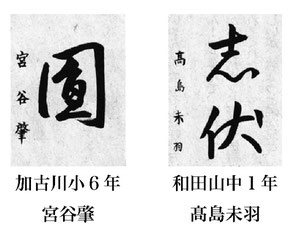 圓
宮谷肇
加古川小6年
宮谷肇
志伏
髙島未羽
和田山中1年
髙島未羽